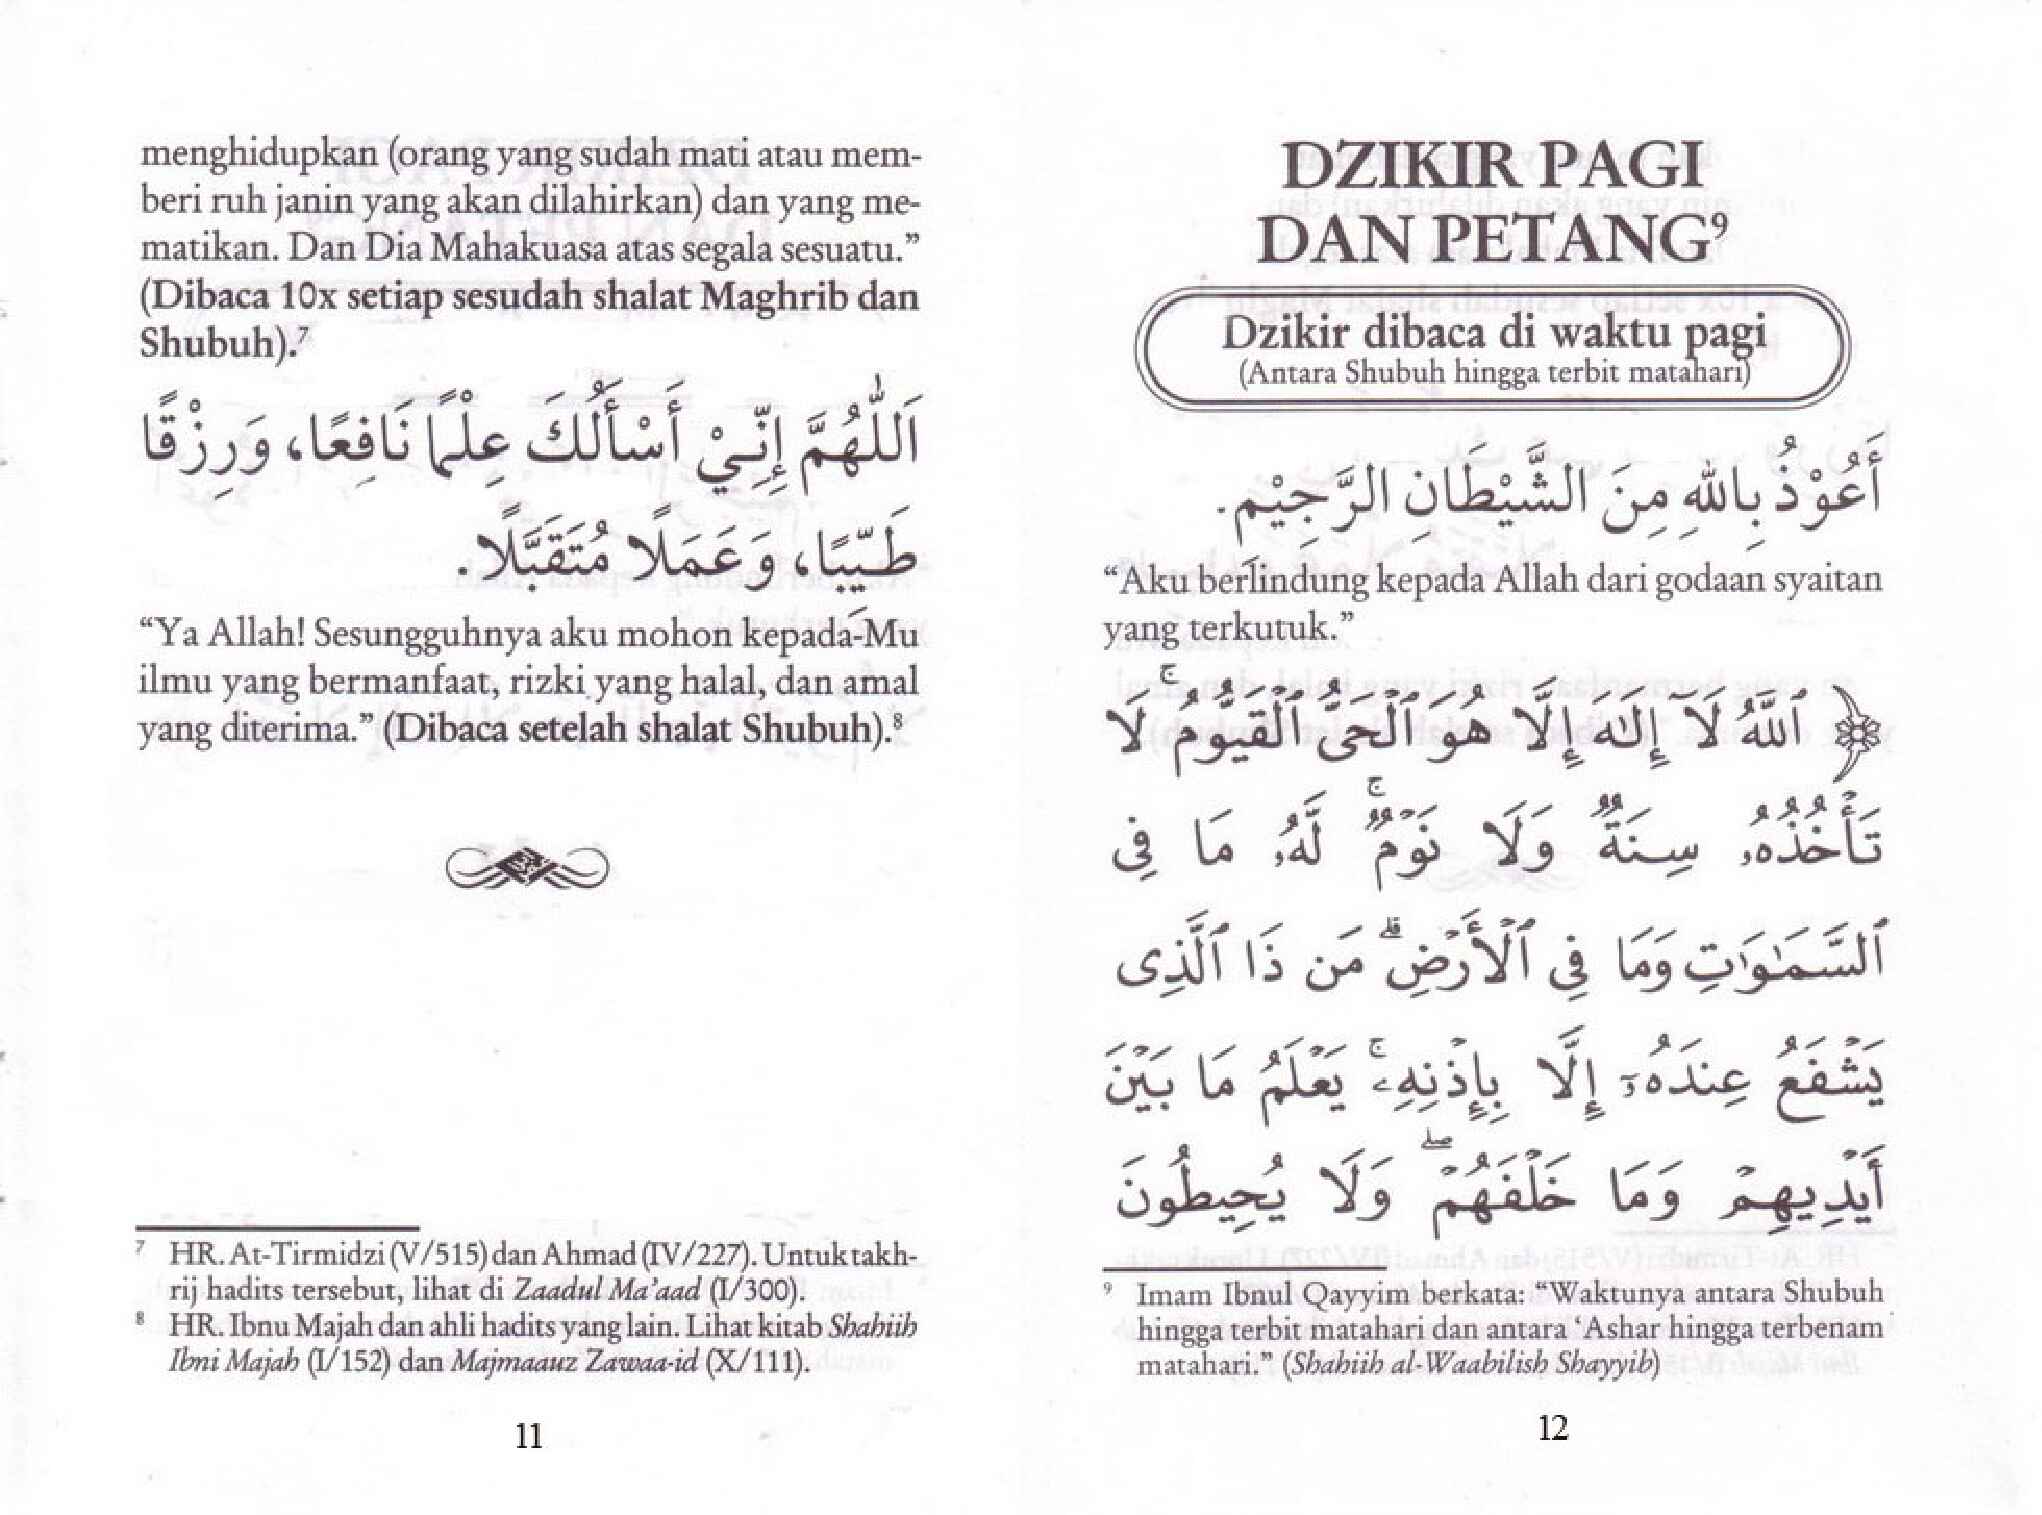 menghidupkan (orang yang sudah mati atau mem-
beri ruh janin yang akan dilahirkan) dan yang me-
matikan. Dan Dia Mahakuasa atas segala sesuatu.”
(Dibaca 10x setiap sesudah shalat Maghrib dan
Shubuh).⁷
اَللّٰهُمَّ إِنِّيْ أَسْأَلُكَ عِلْمًا نَافِعًا، وَرِزْقًا
طَيِّبًا، وَعَمَلًا مُتَقَبَّلًا.
“Ya Allah! Sesungguhnya aku mohon kepada-Mu
ilmu yang bermanfaat, rizki yang halal, dan amal
yang diterima.” (Dibaca setelah shalat Shubuh).⁸
⁷ HR. At-Tirmidzi (V/515) dan Ahmad (IV/227). Untuk takh-
rij hadits tersebut, lihat di Zaadul Ma’aad (I/300).
⁸ HR. Ibnu Majah dan ahli hadits yang lain. Lihat kitab Shahiih
Ibni Majah (I/152) dan Majmaauz Zawaa-id (X/111).
11
DZIKIR PAGI
DAN PETANG⁹
Dzikir dibaca di waktu pagi
(Antara Shubuh hingga terbit matahari)
أَعُوْذُ بِاللهِ مِنَ الشَّيْطَانِ الرَّجِيْمِ.
“Aku berlindung kepada Allah dari godaan syaitan
yang terkutuk.”
﴿ ٱللَّهُ لَآ إِلَـٰهَ إِلَّا هُوَ ٱلْحَىُّ ٱلْقَيُّومُ ۚ لَا
تَأْخُذُهُۥ سِنَةٌ وَلَا نَوْمٌ ۚ لَّهُۥ مَا فِى
ٱلسَّمَـٰوَٰتِ وَمَا فِى ٱلْأَرْضِ ۗ مَن ذَا ٱلَّذِى
يَشْفَعُ عِندَهُۥٓ إِلَّا بِإِذْنِهِۦ ۚ يَعْلَمُ مَا بَيْنَ
أَيْدِيهِمْ وَمَا خَلْفَهُمْ ۖ وَلَا يُحِيطُونَ
⁹ Imam Ibnul Qayyim berkata: “Waktunya antara Shubuh
hingga terbit matahari dan antara ‘Ashar hingga terbenam
matahari.” (Shahiih al-Waabilish Shayyib)
12